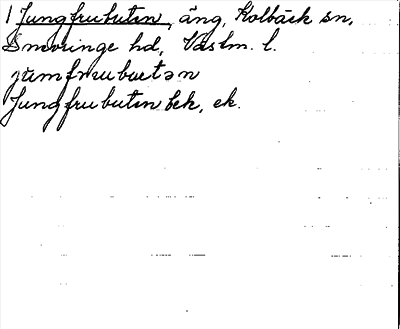 1 Jungfrubuten, äng, Kolbäck sn,
Snevringe hd, Västm. l.
Jungfrubuten bek, ek.